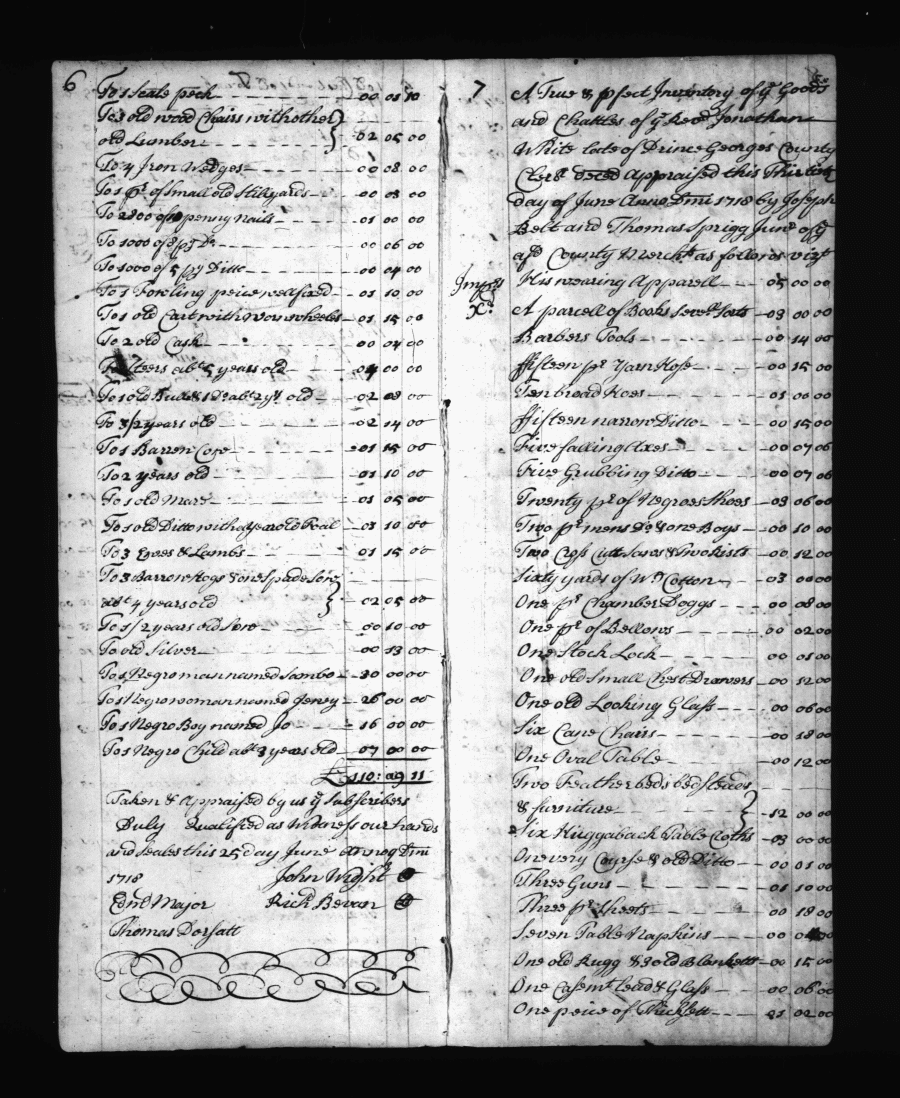 6
To 1 Seale peck 00 01 10
To 3 old wood Chairs with other
old Lumber 02 05 00
To 4 Iron Wedges 00 08 00
To 1 pr. of Small old Stillyards 00 03 00
To 2800 of 10 penny nails 01 00 00
To 1000 of 8 py Do. 00 06 00
To 1000 of 5 py Ditto 00 04 00
To 1 Fowling peice well fixed 01 10 00
To 1 old Cart with worn wheels 01 15 00
To 2 old Cask 00 04 00
Steers abt. 5 years old 00 00
To 1 old Bull & 1 Do abt 2 yr. old 02 00
To 3/2 years old 02 14 00
To 1 Barren Cow 01 15 00
To 2 years old 01 10 00
To 1 old Mare 01 05 00
To 1 old Ditto with a year old Foal 03 10 00
To 3 Ewes & Lambs 01 15 00
To 3 Barrow Hogs & one Spade Sow
abt. 4 years old 02 05 00
To 1/2 years old Sow 00 10 00
To old Silver 00 13 00
To 1 Negro man named Sambo 30 00 00
To 1 Negro woman named Jenny 26 00 00
To 1 Negro Boy named Jo 16 00 00
To 1 Negro Child abt. 3 years old 07 00 00
£110: 09 11
Taken & Appraised by us ye Subscribers
Duly Qualified as Witness our hands
and Seales this 25 day June Annoq Dmi
1718 John Wight
Edwd. Major Richd. Bevan
Thomas Dorsatt
7
A True & pfect Inventory of ye Goods
and Chattles of ye Revd. Jonathan
White late of Prince Georges County
Clerk deced Appraised this Thirtieth
day of June Anno Dmi 1718 by Joseph
Belt and Thomas Sprigg Junr. of ye
afd. County Mercht. as follows vizt
Imprs His wearing Apparell 05 00 00
A parcell of Books Severll. Sorts 03 00 00
Barbers Tools 00 14 00
ffifteen pr. Yarn Hose 00 15 00
Ten broad Hoes 01 00 00
ffifteen narrow Ditto 00 15 00
Five falling Axes 00 07 06
Five Grubbing Ditto 00 07 06
Twenty pr. of Negroes Shoes 03 06 00
Two pr. mens Do. & one Boys 00 10 00
Two Cross Cutt Saws & Two Rists 00 12 00
Sixty yards of Wh Cotton 03 00 00
One pr. Chamber Doggs 00 08 00
One pr. of Bellows 00 02 00
One Stock Lock 00 01 00
One old Small Chest Drawers 00 12 00
One old Looking Glass 00 06 00
Six Cane Chairs 00 18 00
One Oval Table 00 12 00
Two Feather beds bedsteads
& furniture 12 00 00
Six Huggaback Table Cloths 03 00 00
One very Course & old Ditto 00 01 00
Three Guns 01 10 00
Three pr. Sheets 00 18 00
Seven Table Napkins 00
One old Rugg & 3 old Blanketts 00 15 00
One Casemt. lead & Glass 00 06 00
One peice of Thicksett 01 02 00